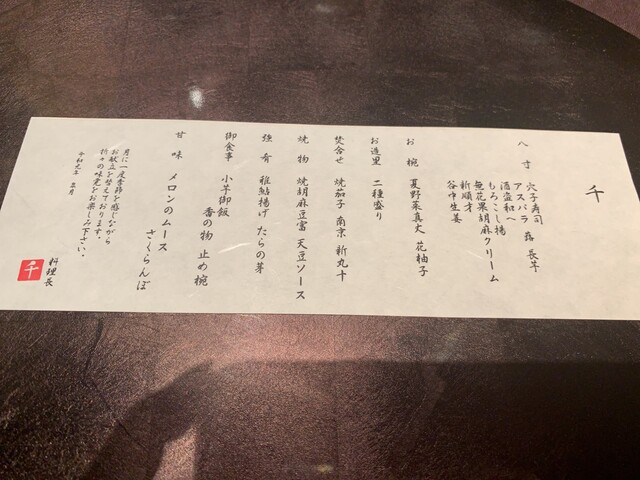 千
八寸 穴子寿司
アスパラ 蕗 長芋
酒盗和へ
もろこし揚
無花果胡麻クリーム
新順才
谷中生姜
お椀 夏野菜真丈 花柚子
お造里 二種盛り
焚合せ 焼茄子 南京 新丸十
焼物 焼胡麻豆富 天豆ソース
強肴 稚鮎揚げ たらの芽
御食事 小芋御飯
香の物 止め椀
甘味 メロンのムース
さくらんぼ
月に一度季節を感じながら
お献立を替えております。
折々の味覚をお楽しみ下さい。
令和元年 五月
料理長
千